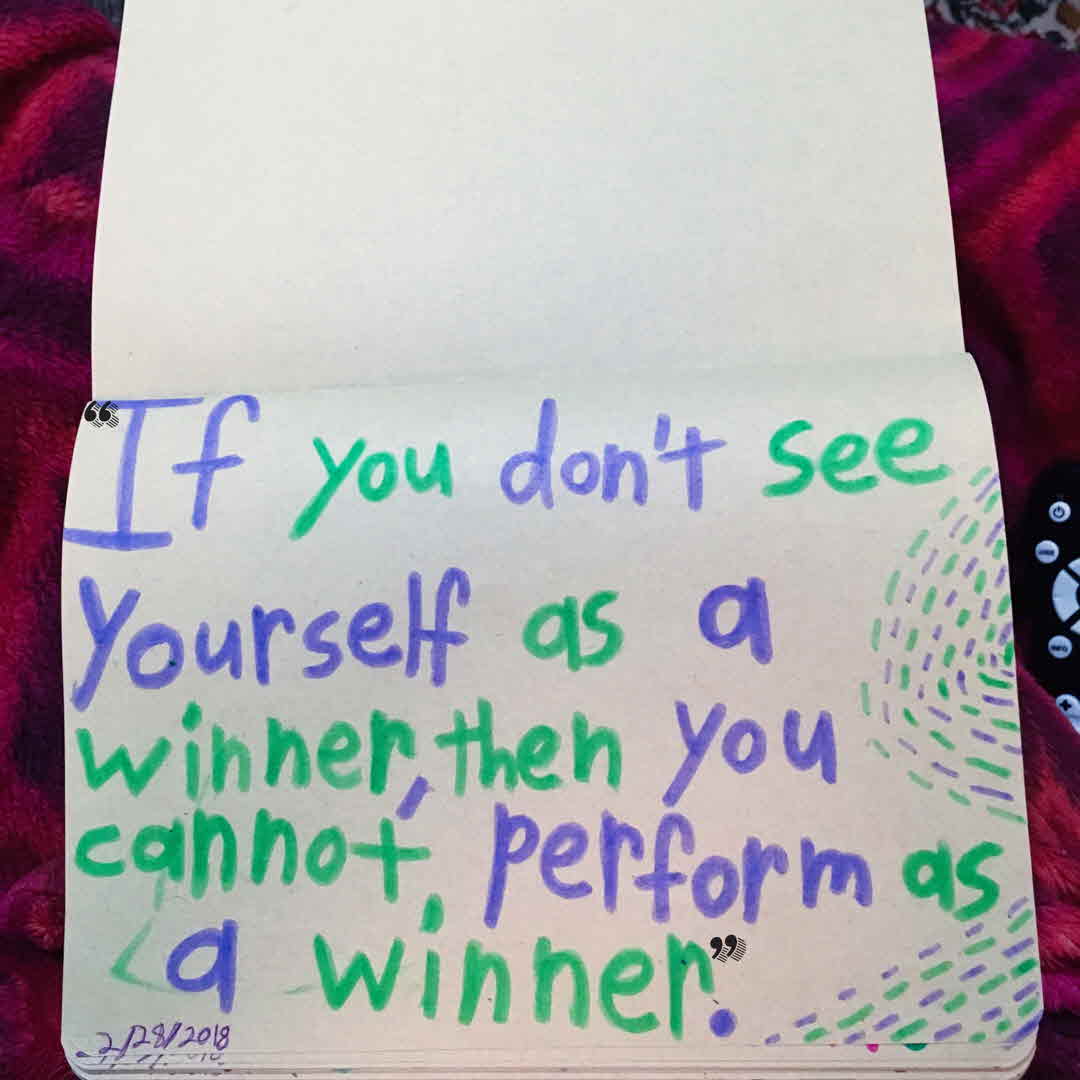 “If you don't see
yourself as a
winner, then you
cannot perform as
a winner.”
2/28/2018
INFO